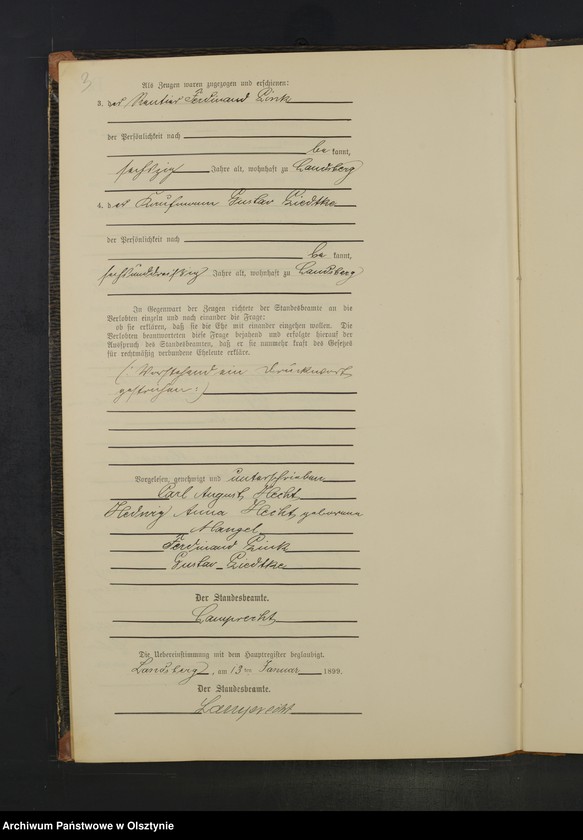 3
Als Zeugen waren zugezogen und erschienen:
3. der Rentier Ferdinand Zink
der Persönlichkeit nach
be kannt,
sechszig Jahre alt, wohnhaft zu Landsberg
4. der Kaufmann Gustav
der Persönlichkeit nach
be kannt,
sechsunddreißig Jahre alt, wohnhaft zu Landsberg
In Gegenwart der Zeugen richtete der Standesbeamte an die
Verlobten einzeln und nach einander die Frage:
ob sie erklären, daß sie die Ehe mit einander eingehen wollen. Die
Verlobten beantworteten diese Frage bejahend und erfolgte hierauf der
Ausspruch des Standesbeamten, daß er sie nunmehr kraft des Gesetzes
für rechtmäßig verbundene Eheleute erkläre.
(: Vorstehend ein Druckwort
gestrichen :)
Vorgelesen, genehmigt und unterschrieben
Carl August Hecht
Hedwig Anna Hecht, geborene
Mangel
Ferdinand Zink
Gustav
Der Standesbeamte.
Lamprecht
Die Uebereinstimmung mit dem Hauptregister beglaubigt.
Landsberg, am 13ten Januar 1899.
Der Standesbeamte.
Lamprecht
Archiwum Państwowe w Olsztynie